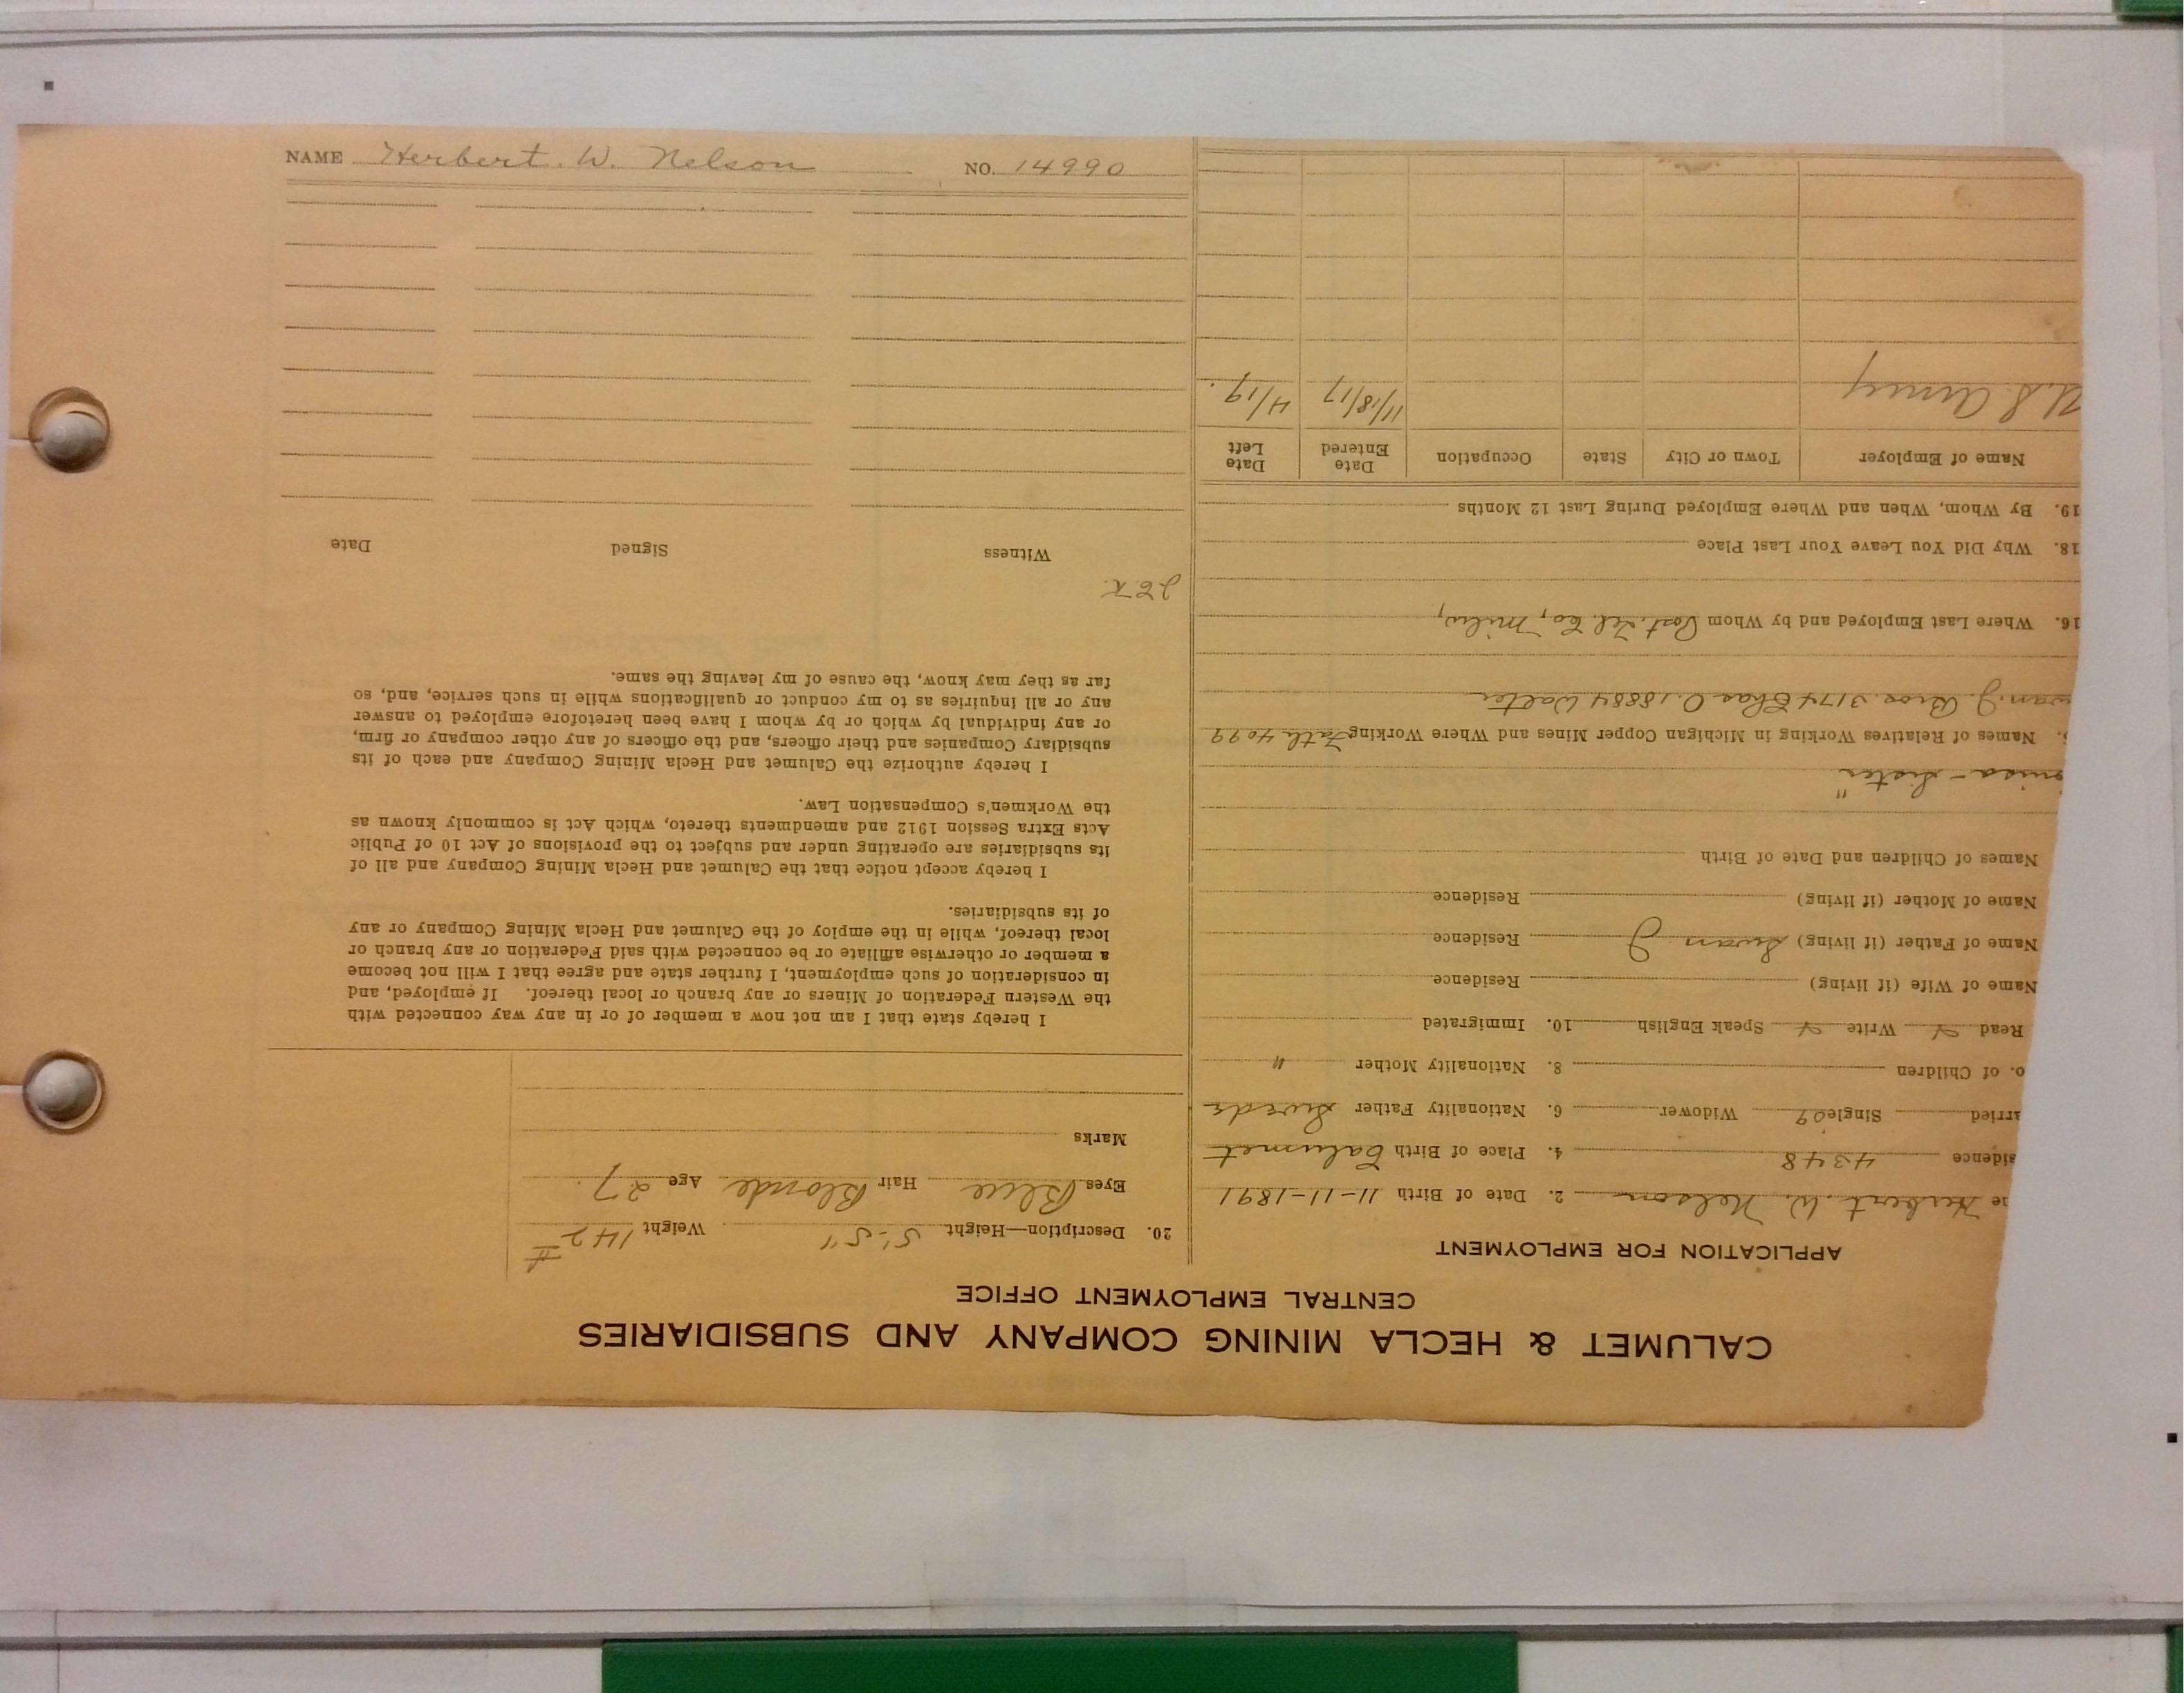 CALUMET & HECLA MINING COMPANY AND SUBSIDIARIES
CENTRAL EMPLOYMENT OFFICE
APPLICATION FOR EMPLOYMENT
Herbert. W. Nelson 2. Date of Birth 11-11-1891
sidence 4348 4. Place of Birth Calumet
arried Single Widower 6. Nationality Father Swede
o. of Children 8. Nationality Mother "
Read Write Speak English 10. Immigrated
Name of Wife (if living) Residence
Name of Father (if living) Swan J Residence
Name of Mother (if living) Residence
Names of Children and Date of Birth
Sister "
Names of Relatives Working in Michigan Copper Mines and Where Working Fath 4099
wan. J. Bros. 3174 Chas O. 18884 Walter
16. Where Last Employed and by Whom Post. Tel. Co, Milw,
18. Why Did You Leave Your Last Place
19. By Whom, When and Where Employed During Last 12 Months
Name of Employer Town or City State Occupation Date Entered Date Left
U.S. Army 11/18/17 4/19.
20. Description—Height 5'-5" Weight 142 #
Eyes Blue Hair Blonde Age 27
Marks
I hereby state that I am not now a member of or in any way connected with
the Western Federation of Miners or any branch or local thereof. If employed, and
in consideration of such employment, I further state and agree that I will not become
a member or otherwise affiliate or be connected with said Federation or any branch or
local thereof, while in the employ of the Calumet and Hecla Mining Company or any
of its subsidiaries.
I hereby accept notice that the Calumet and Hecla Mining Company and all of
its subsidiaries are operating under and subject to the provisions of Act 10 of Public
Acts Extra Session 1912 and amendments thereto, which Act is commonly known as
the Workmen's Compensation Law.
I hereby authorize the Calumet and Hecla Mining Company and each of its
subsidiary Companies and their officers, and the officers of any other company or firm,
or any individual by which or by whom I have been heretofore employed to answer
any or all inquiries as to my conduct or qualifications while in such service, and, so
far as they may know, the cause of my leaving the same.
Witness Signed Date
NAME Herbert. W. Nelson NO. 14990